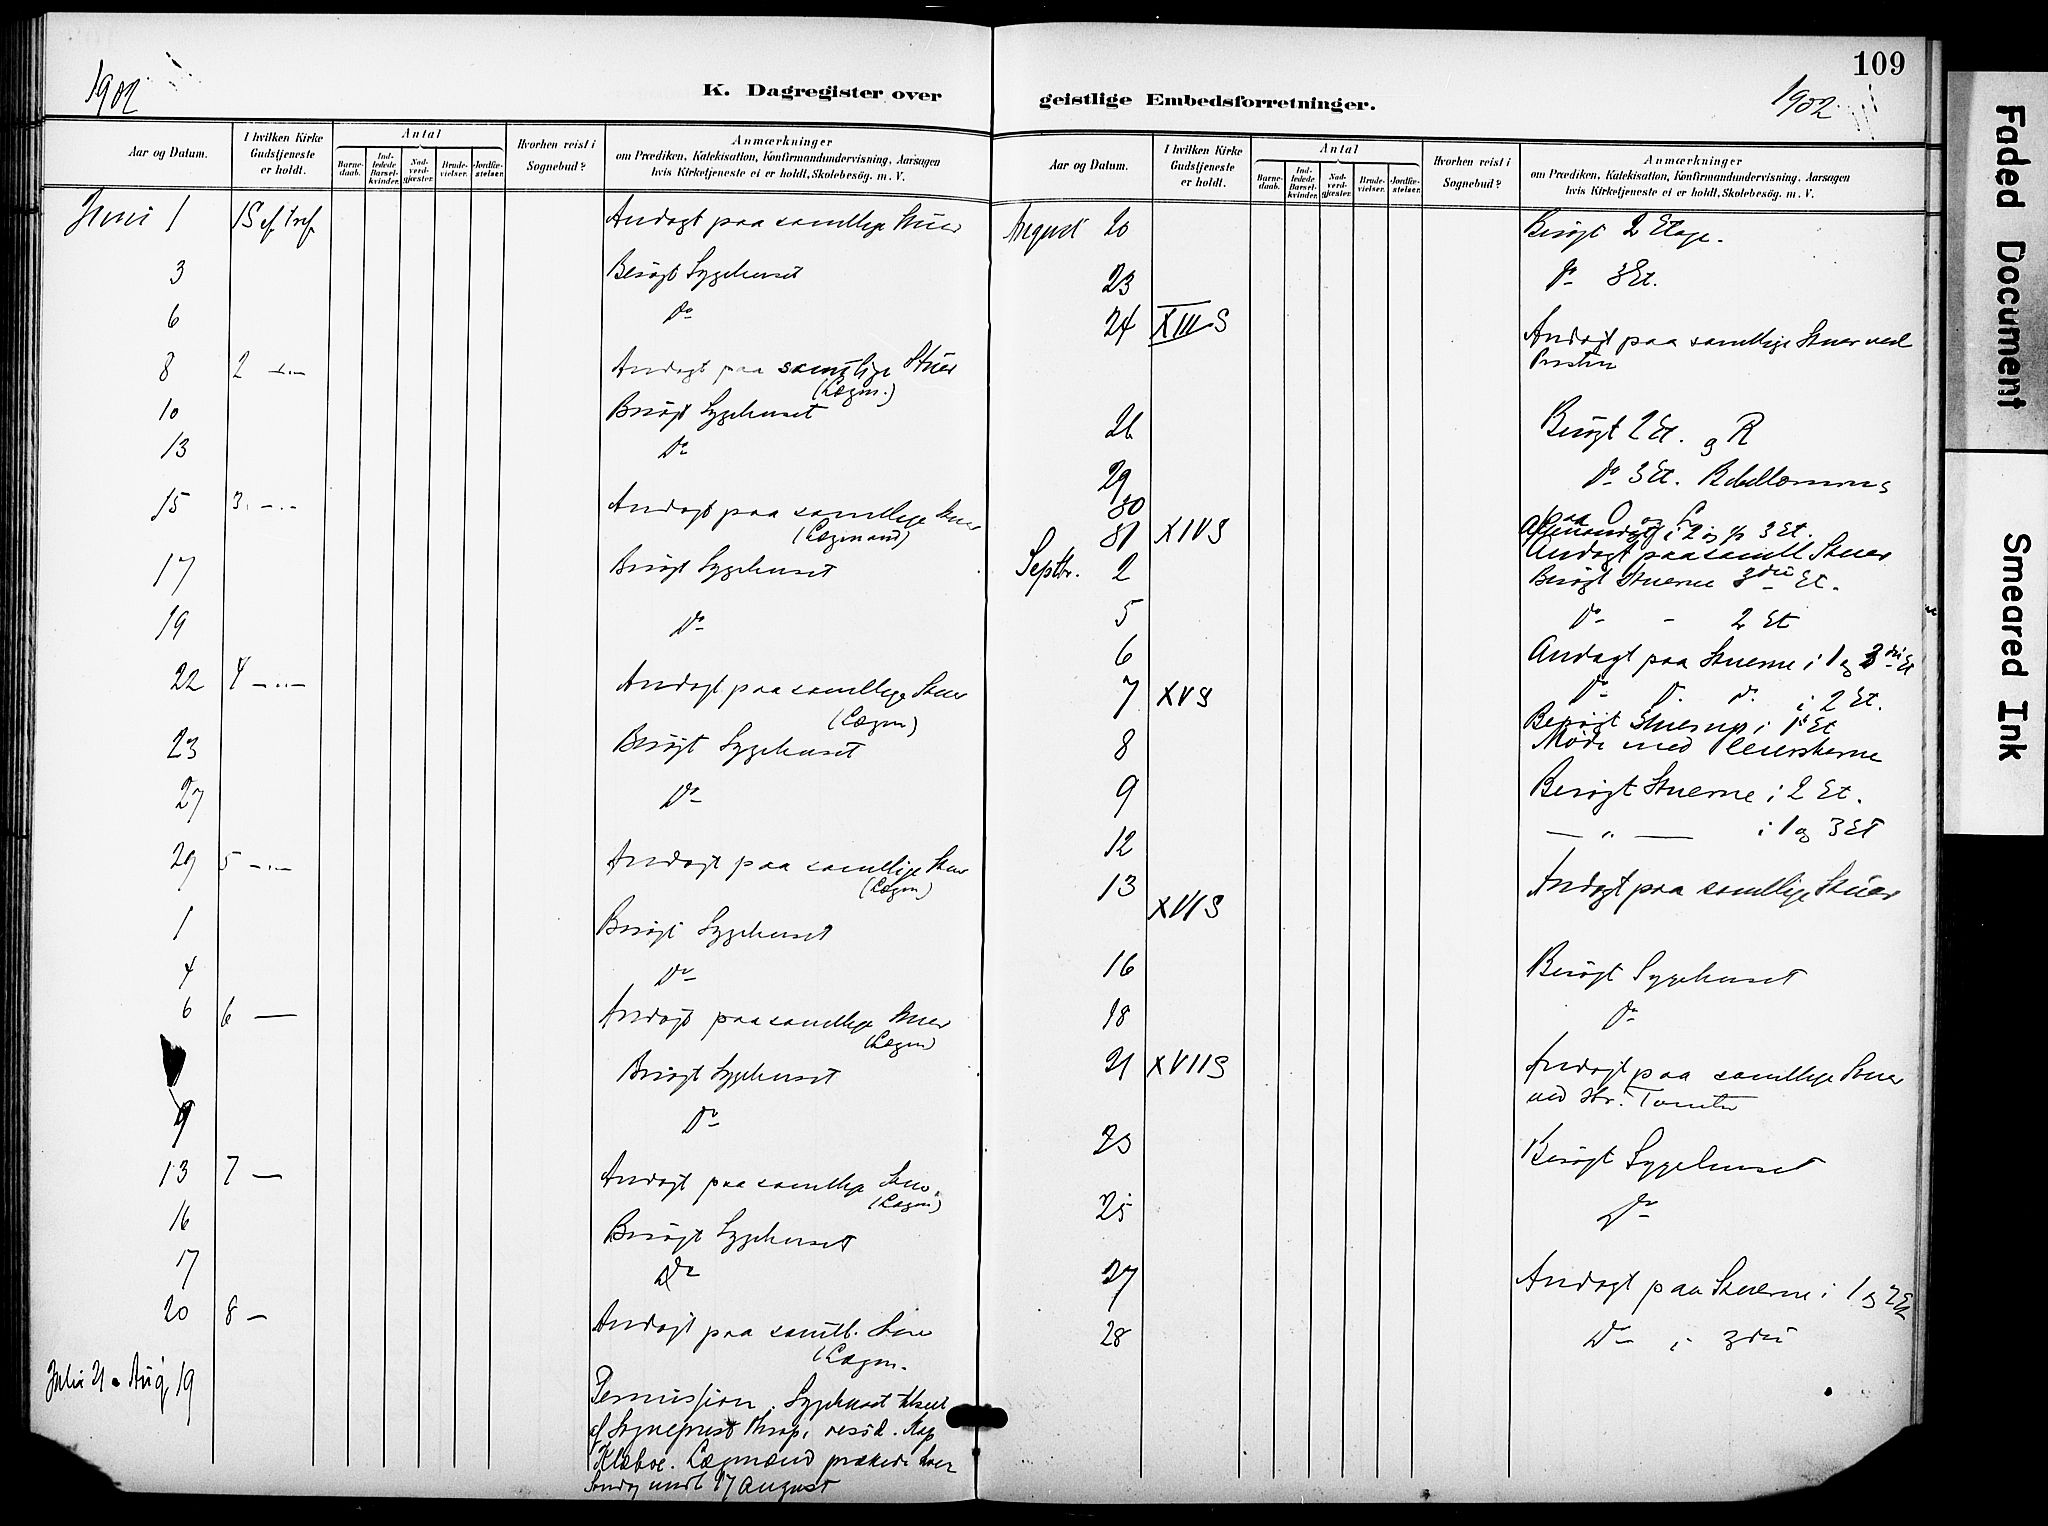 109
1902
K. Dagregister over
geistlige Embedsforretninger.
1902
Aar og Datum.
I hvilken Kirke Gudstjeneste er holdt.
Antal
Barne-daab.
Ind-ledede Barsel-kvinder.
Nad-verd-gjæster.
Brude-vielser.
Jordfæ-stelser.
Hvorhen reist i Sognebud?
Anmærkninger
om Prædiken, Katekisation, Konfirmandundervisning, Aarsagen
hvis Kirketjeneste ei er holdt, Skolebesøg. m. V.
Juni 1 1 S ef. tref. Andagt paa samtlige Stuer
3 Besøgt Sygehuset
6 Do
8 2 -"- Andagt paa samtlige Stuer
(Lægm.)
10 Besøgt Sygehuset
13 Do
15 3. -"- Andagt paa samtlige Stuer
(Lægmand)
17 Besøgt Sygehuset
19 Do
22 4 -"- Andagt paa samtlige Stuer
(Lægm)
23 Besøgt Sygehuset
27 Do
29 5 -"- Andagt paa samtlige Stuer
(Lægm)
1 Besøgt Sygehuset
4 Do
6 6 — Andagt paa samtlige Stuer
(Lægm)
Besøgt Sygehuset
9 Do
13 7 — Andagt paa samtlige Stuer
(Lægm)
16 Besøgt Sygehuset
17 Do
20 8 — Andagt paa samtl. Stuer
(Lægm.
Juli 21 - Aug. 19
Permission. Sygehuset tilseet
af Sogneprest Thrap, resid. Kap
Klæboe. Lægmænd prækede hver
Søndag undt 17 August
Aar og Datum.
I hvilken Kirke Gudstjeneste er holdt.
Antal
Barne-daab.
Ind-ledede Barsel-kvinder.
Nad-verd-gjæster.
Brude-vielser.
Jordfæ-stelser.
Hvorhen reist i Sognebud?
Anmærkninger
om Prædiken, Katekisation, Konfirmandundervisning, Aarsagen
hvis Kirketjeneste ei er holdt, Skolebesøg. m. V.
August 20 Besøgt 2 Etage.
23 Do 3 Et.
24 XIII S Andagt paa samtlige Stuer ved
Presten
26 Besøgt 2 Et. og R
29 Do 3 Et.
30 paa O og L
i 2 og 3 Et.
31 XIV S Andagt paa samtl Stuer
Septbr. 2 Besøgt Stuerne 3die Et.
5 Do - 2 Et
6 Andagt paa Stuerne i 1 og 3die Et
7 XV S Do D. D. i 2 Et.
Besøgt Stuerne i 1st Et
8 Møde med Pleierskerne
9 Besøgt Stuerne i 2 Et.
12 — " — i 1 og 3 Et
13 Andagt paa samtlige Stuer
XVI S
16 Besøgt Sygehuset
18 Do
21 XVII S Andagt paa samtlige Stuer
ved Hr. Tomter
23 Besøgt Sygehuset
25 Do
27 Andagt paa Stuerne i 1 og 2 Et
28 Do i 3die
Faded Document
Smeared Ink